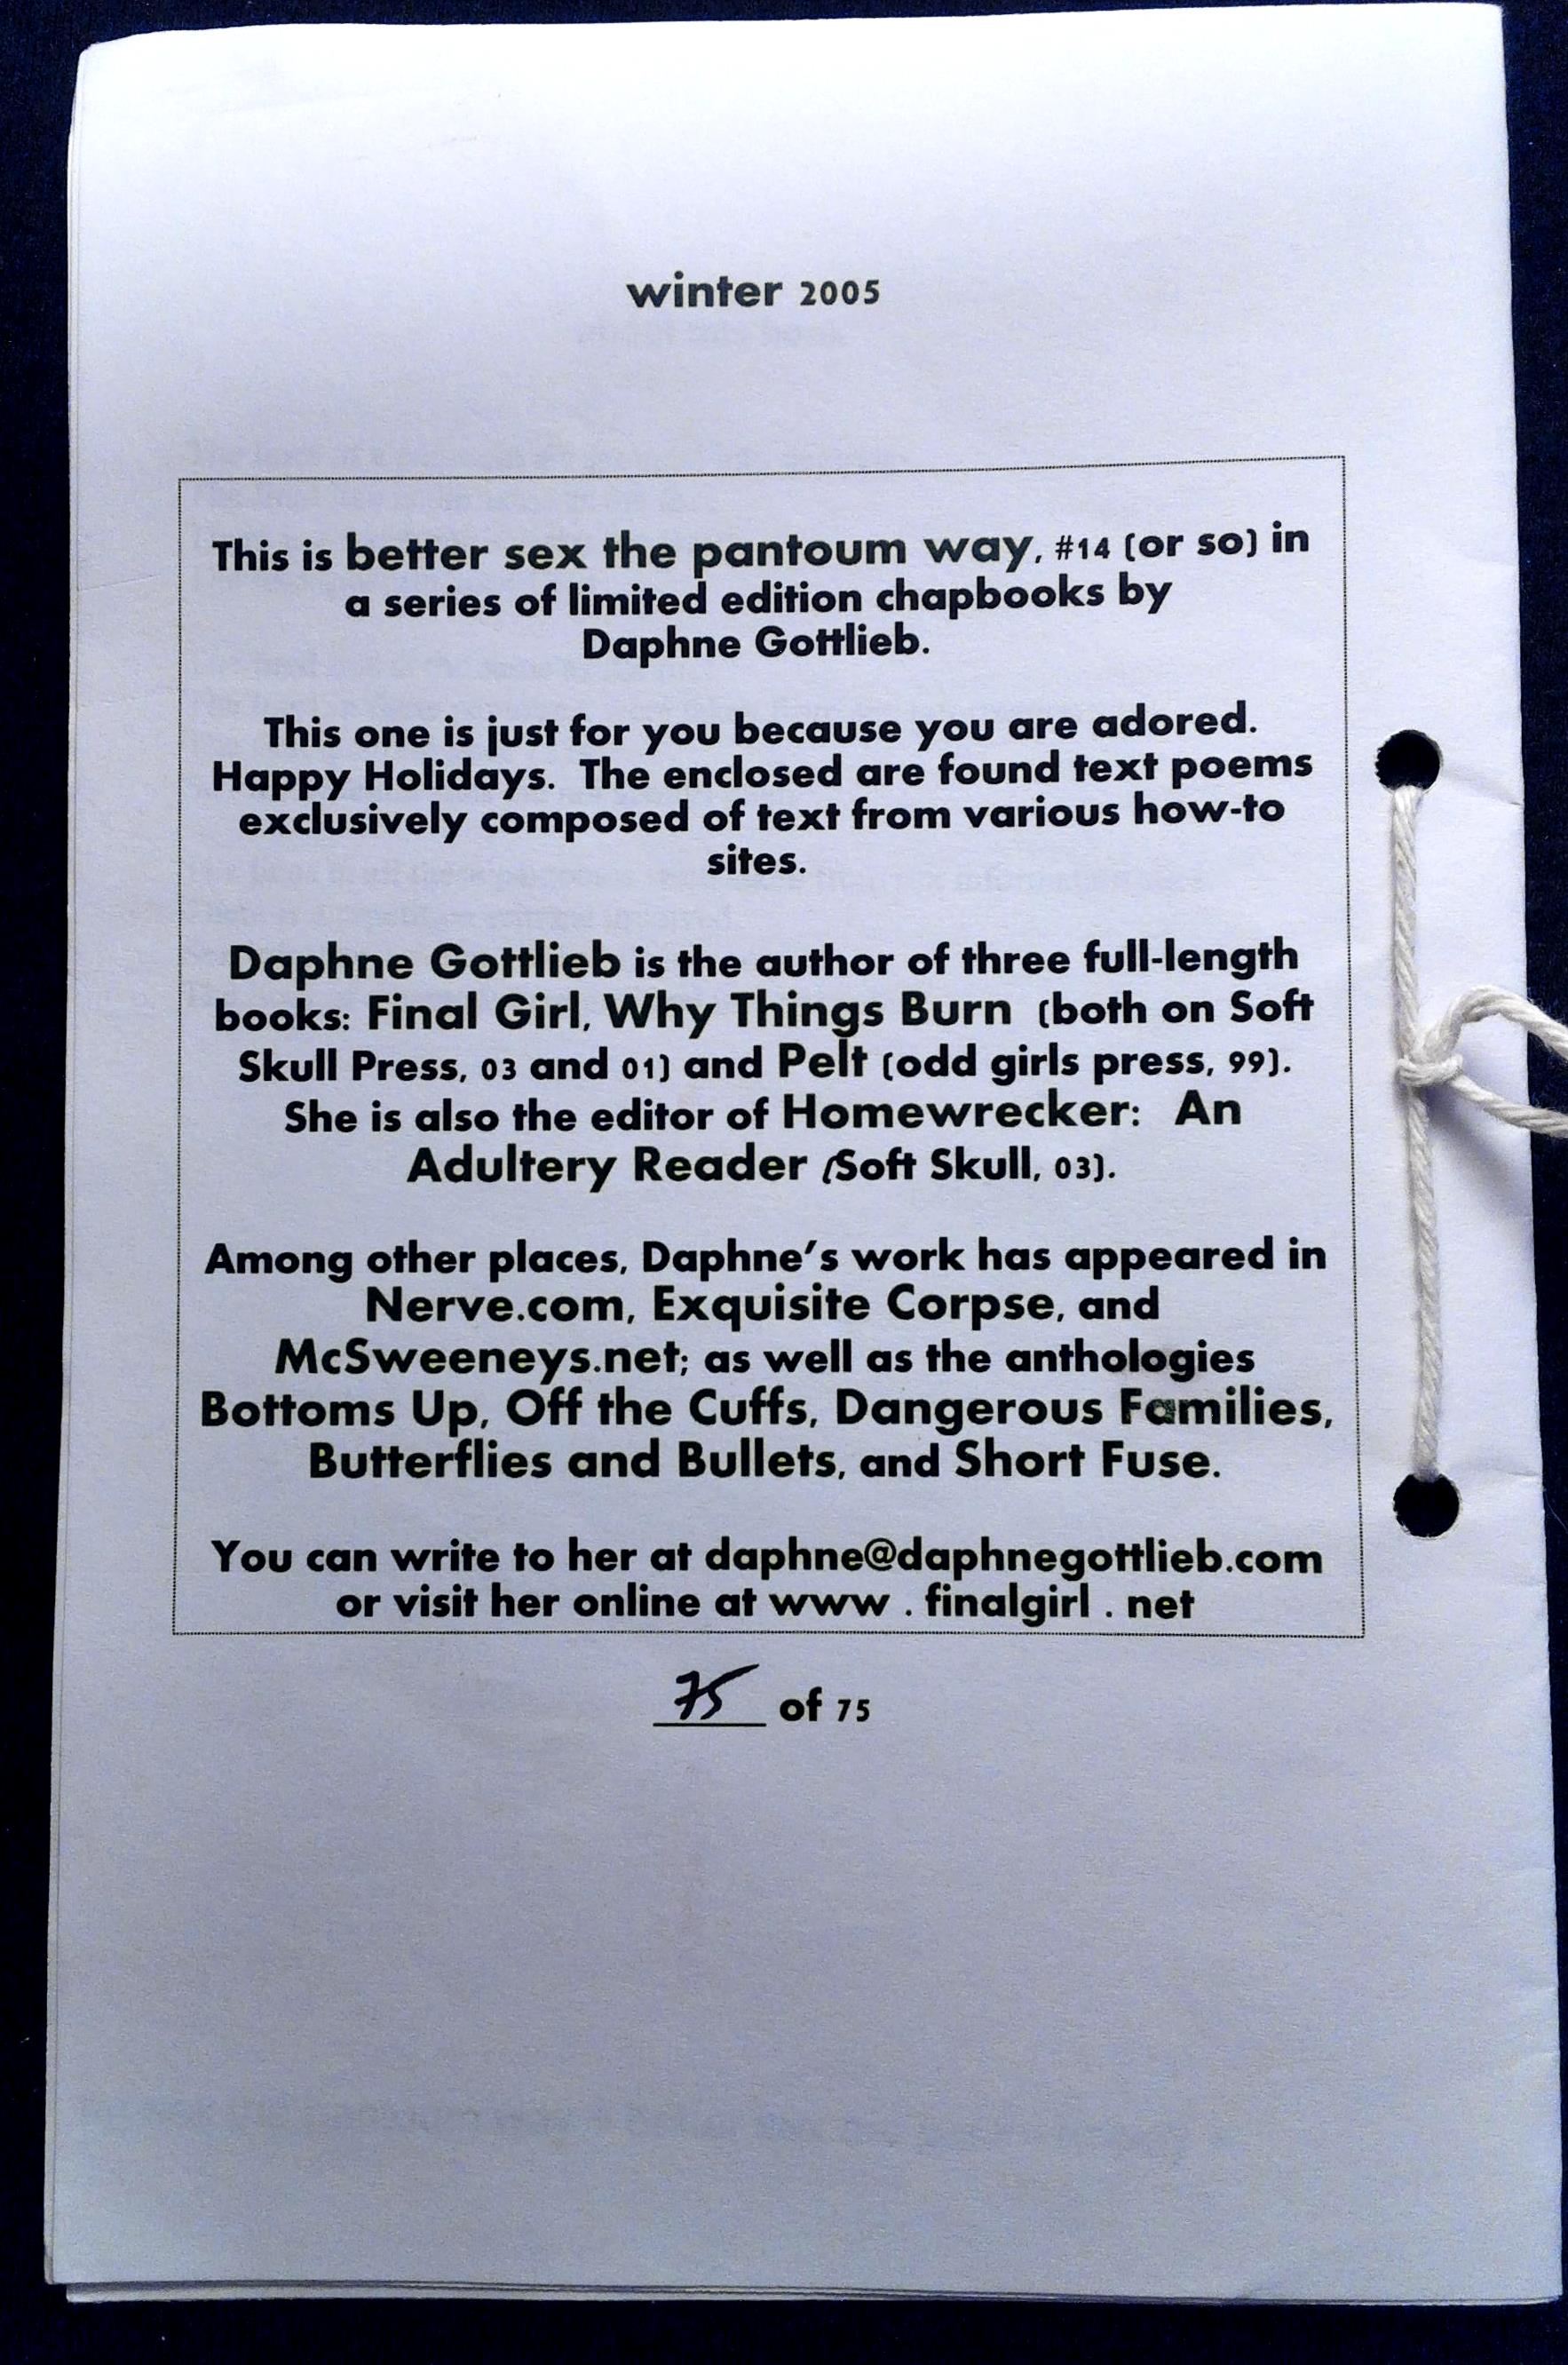 winter 2005
This is better sex the pantoum way, #14 (or so) in
a series of limited edition chapbooks by
Daphne Gottlieb.
This one is just for you because you are adored.
Happy Holidays. The enclosed are found text poems
exclusively composed of text from various how-to
sites.
Daphne Gottlieb is the author of three full-length
books: Final Girl, Why Things Burn (both on Soft
Skull Press, 03 and 01) and Pelt (odd girls press, 99).
She is also the editor of Homewrecker: An
Adultery Reader (Soft Skull, 03).
Among other places, Daphne's work has appeared in
Nerve.com, Exquisite Corpse, and
McSweeneys.net; as well as the anthologies
Bottoms Up, Off the Cuffs, Dangerous Families,
Butterflies and Bullets, and Short Fuse.
You can write to her at daphne@daphnegottlieb.com
or visit her online at www . finalgirl . net
75 of 75